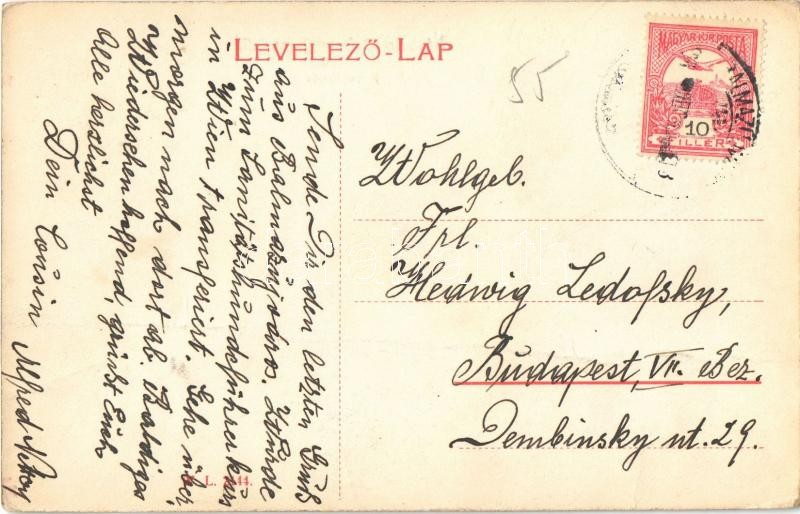 LEVELEZŐ-LAP
MAGYAR KIR. POSTA
10
FILLÉR
55
Sende Dir den letzten Gruß
aus Balmazújváros. Würde
zum Sanitätshundeführerkurs
in Wien transferiert. Gehe über
morgen nach dort ab. Baldiges
Wiedersehen hoffend, grüßt Euch
Alle herzlichst
Dein Cousin Alfred
Wohlgeb.
Frl.
Hedwig Ledofsky,
Budapest, VII. Bez.
Dembinsky ut. 29.
L. 44.